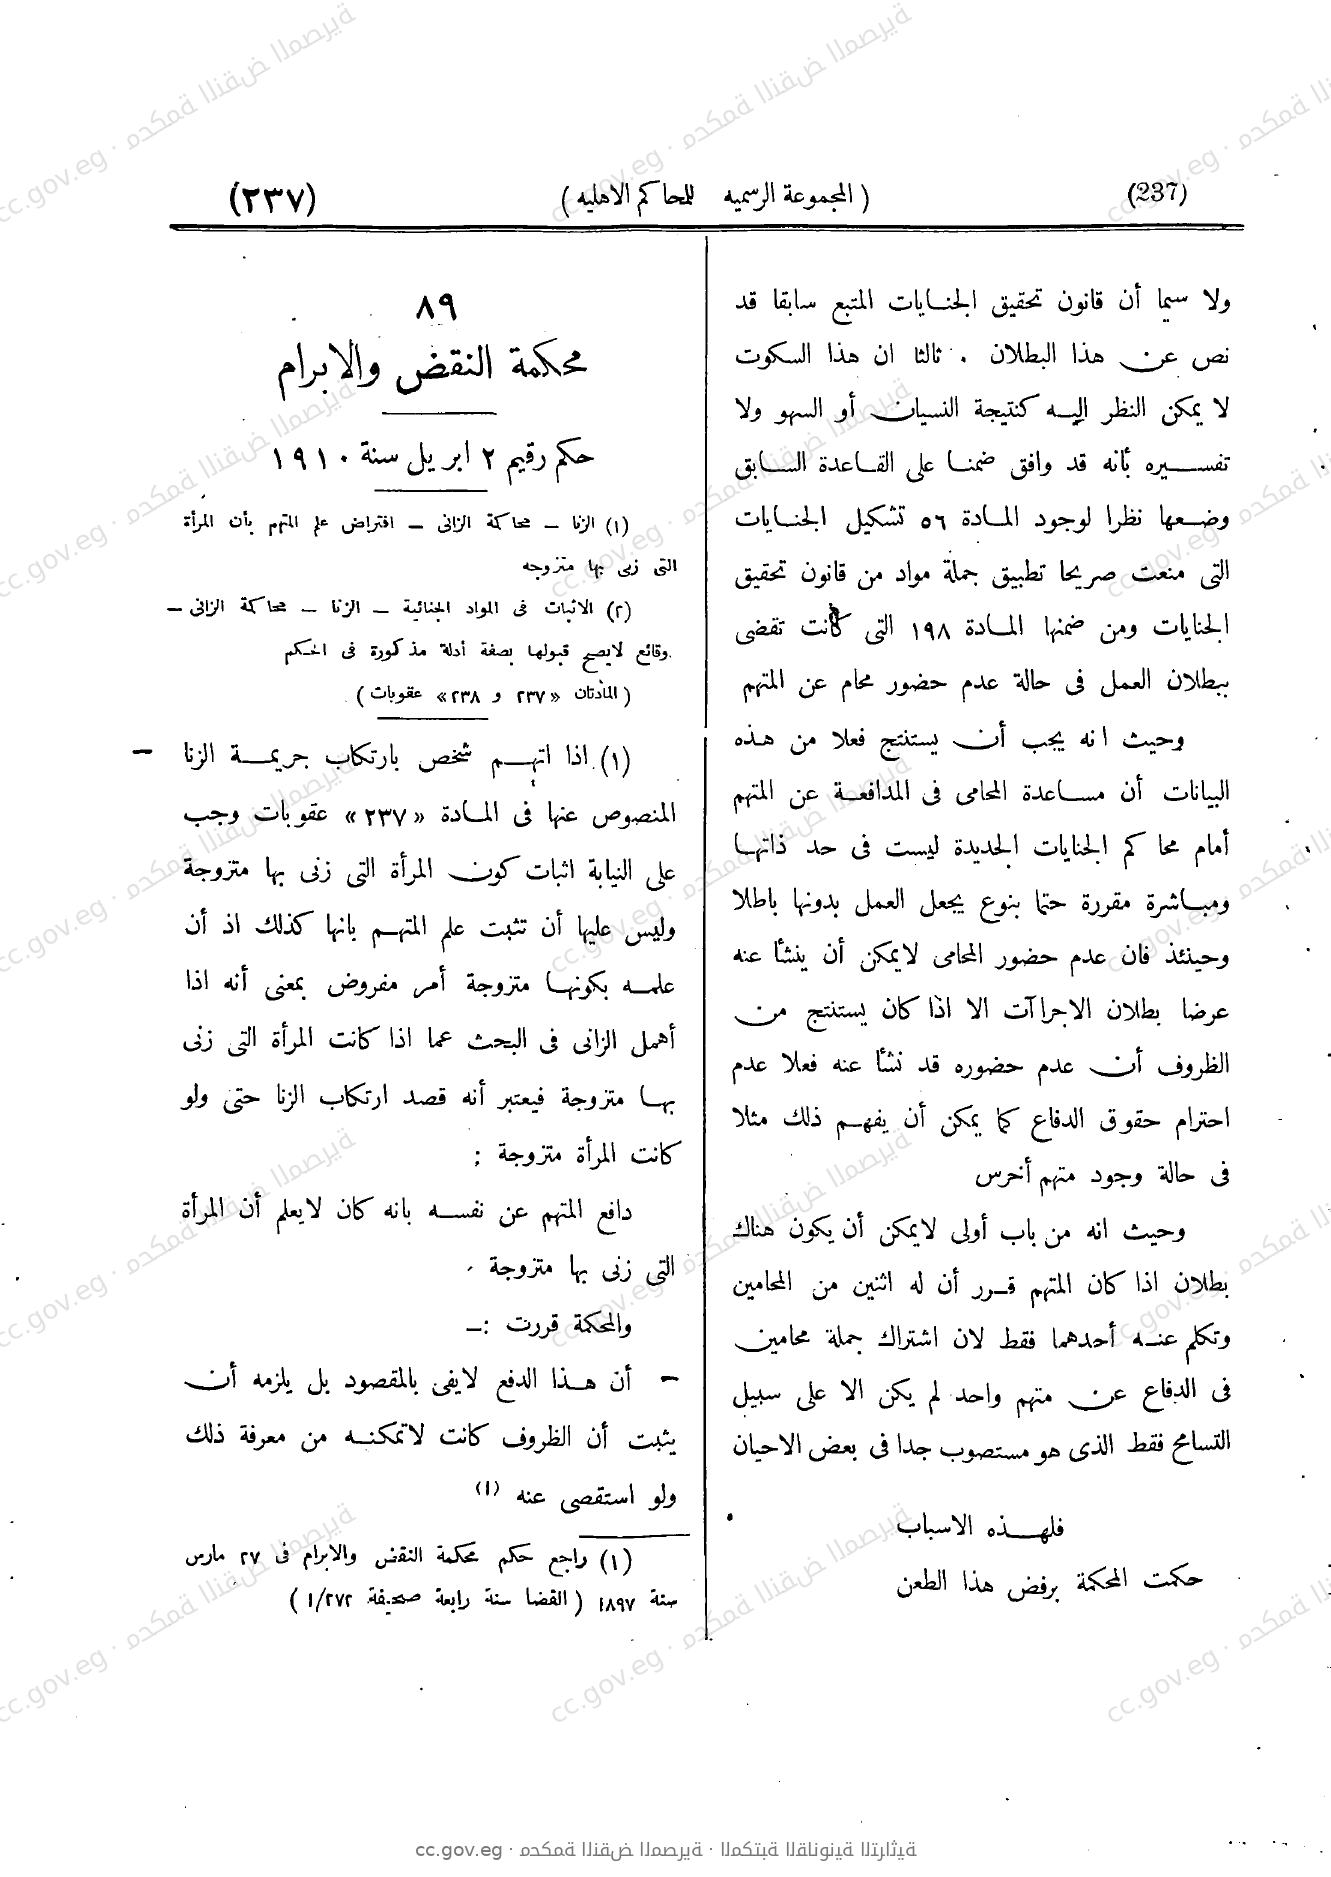 (237)
( المجموعة الرسميه للمحاكم الاهليه )
(٢٣٧)
ولا سيما أن قانون تحقيق الجنايات المتبع سابقا قد
نص عن هذا البطلان . ثالثا ان هذا السكوت
لا يمكن النظر اليه كنتيجة النسيان أو السهو ولا
تفسيره بأنه قد وافق ضمنا على القاعدة السابق
وضعها نظرا لوجود المادة ٥٦ تشكيل الجنايات
التى منعت صريحا تطبيق جملة مواد من قانون تحقيق
الجنايات ومن ضمنها المادة ١٩٨ التى كانت تقضى
ببطلان العمل فى حالة عدم حضور محام عن المتهم
وحيث انه يجب أن يستنتج فعلا من هذه
البيانات أن مساعدة المحامى فى المدافعة عن المتهم
أمام محاكم الجنايات الجديدة ليست فى حد ذاتها
ومباشرة مقررة حتما بنوع يجعل العمل بدونها باطلا
وحينئذ فان عدم حضور المحامى لايمكن أن ينشأ عنه
عرضا بطلان الاجراآت الا اذا كان يستنتج من
الظروف أن عدم حضوره قد نشأ عنه فعلا عدم
احترام حقوق الدفاع كما يمكن أن يفهم ذلك مثلا
فى حالة وجود متهم أخرس
وحيث انه من باب أولى لايمكن أن يكون هناك
بطلان اذا كان المتهم قرر أن له اثنين من المحامين
وتكلم عنه أحدهما فقط لان اشتراك جملة محامين
فى الدفاع عن متهم واحد لم يكن الا على سبيل
التسامح فقط الذى هو مستصوب جدا فى بعض الاحيان
فلهذه الاسباب
حكمت المحكمة برفض هذا الطعن
٨٩
محكمة النقض والابرام
حكم رقيم ٢ ابريل سنة ١٩١٠
(١) الزنا – محاكمة الزانى – افتراض علم المتهم بأن المرأة
التى زنى بها متزوجه
(٢) الاثبات فى المواد الجنائية – الزنا – محاكمة الزانى –
وقائع لايصح قبولها بصفة أدلة مذكورة فى الحكم
( المادتان «٢٣٧ و ٢٣٨» عقوبات )
(١) اذا اتهم شخص بارتكاب جريمة الزنا
المنصوص عنها فى المادة «٢٣٧» عقوبات وجب
على النيابة اثبات كون المرأة التى زنى بها متزوجة
وليس عليها أن تثبت علم المتهم بانها كذلك اذ أن
علمه بكونها متزوجة أمر مفروض بمعنى أنه اذا
أهمل الزانى فى البحث عما اذا كانت المرأة التى زنى
بها متزوجة فيعتبر أنه قصد ارتكاب الزنا حتى ولو
كانت المرأة متزوجة ;
دافع المتهم عن نفسه بانه كان لايعلم أن المرأة
التى زنى بها متزوجة .
والمحكمة قررت :–
– أن هذا الدفع لايفى بالمقصود بل يلزمه أن
يثبت أن الظروف كانت لاتمكنه من معرفة ذلك
ولو استقصى عنه (١)
(١) راجع حكم محكمة النقض والابرام فى ٢٧ مارس
سنة ١٨٩٧ ( القضا سنة رابعة صحيفة ١/٢٧٢ )
cc.gov.eg · محكمة النقض المصرية · المكتبة القانونية التراثية